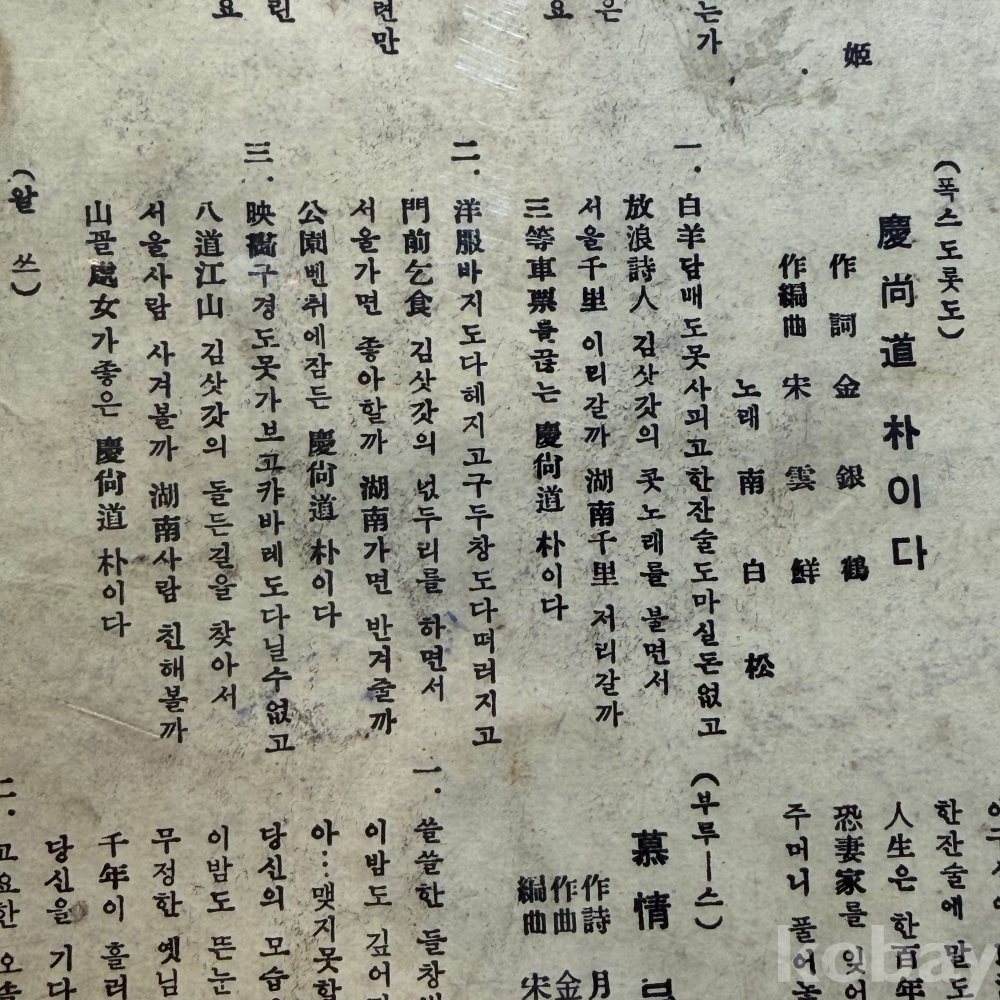 는가
은
요
련만
린
요
姬
(폭스도롯도)
慶尚道 朴이다
作詞 金銀鶴
作編曲 宋雲鮮
노래 南白松
一. 白羊담배도못사피고한잔술도마실돈없고
放浪詩人 김삿갓의 콧노래를 불면서
서울千里 이리갈까 湖南千里 저리갈까
三等車票를끊는 慶尙道 朴이다
二. 洋服바지도다헤지고구두창도다떠러지고
門前乞食 김삿갓의 넋두리를 하면서
서울가면 좋아할까 湖南가면 반겨줄까
公園벤취에잠든 慶尙道 朴이다
三. 映畵구경도못가보고캬바레도다닐수없고
八道江山 김삿갓의 돌든길을 찾아서
서울사람 사겨볼까 湖南사람 친해볼까
山꼴處女가좋은 慶尙道 朴이다
(왈쓰)
한잔술에 말도
人生은 한百年
恐妻家를 잊어
주머니 풀어놓
(부루ー스)
慕情
作詩 月
作曲 金
編曲 宋
一. 쓸쓸한 들창
이밤도 깊어
아…맺지못할
당신의 모습
이밤도 뜬눈
무정한 옛님
千年이 흘러
당신을 기다
二. 고요한 오솔
kobay